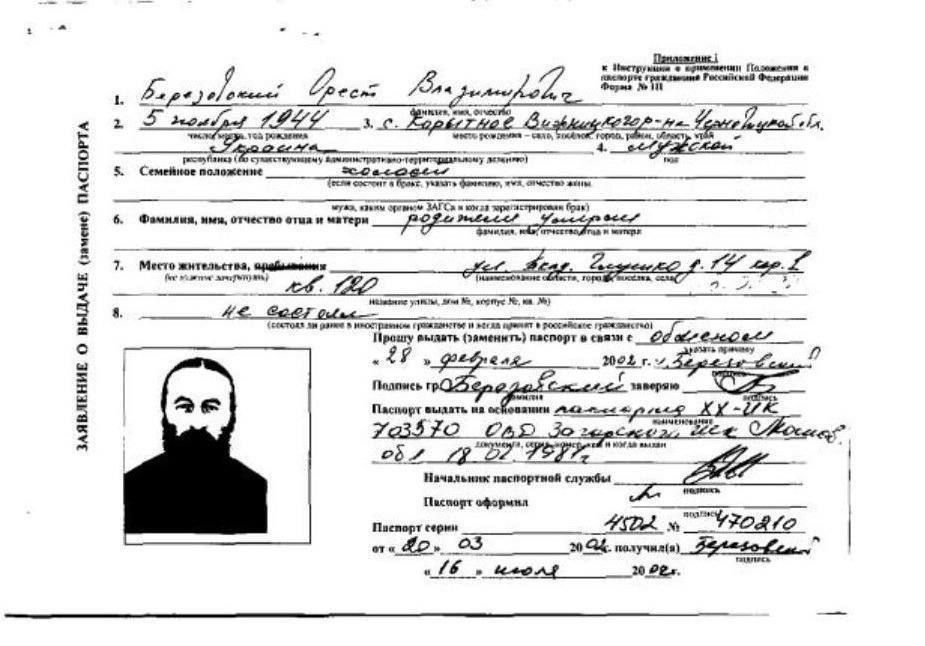 Приложение 1
к Инструкции о применении Положения о
паспорте гражданина Российской Федерации
Форма № 1П
ЗАЯВЛЕНИЕ О ВЫДАЧЕ (замене) ПАСПОРТА
1. Березовский Орест Владимирович
фамилия, имя, отчество
2. 5 ноября 1944 3. с. Корытное Вижницкого р-на Черновицкой обл.
число, месяц, год рождения место рождения – село, посёлок, город, район, область, край
Украина 4. мужской
республика (по существующему административно-территориальному делению) пол
5. Семейное положение холост
(если состоит в браке, указать фамилию, имя, отчество жены,
мужа, каким органом ЗАГСа и когда зарегистрирован брак)
6. Фамилия, имя, отчество отца и матери родители умерли
фамилия, имя, отчество отца и матери
7. Место жительства, пребывания ул. Глушко д. 14 кор. 1
(не нужное зачеркнуть) (наименование области, города, поселка, села)
кв. 120
название улицы, дом №, корпус №, кв. №)
8. не состоял
(состоял ли ранее в иностранном гражданстве и когда принят в российское гражданство)
Прошу выдать (заменить) паспорт в связи с обменом
указать причину
« 28 » февраля 2002 г. Березовский
подпись
Подпись гр. Березовский заверяю
фамилия подпись
Паспорт выдать на основании паспорта XX-ИК
наименование
703570 ОВД Загорского Москов.
документа, серия, номер, кем и когда выдан
обл 18 02 1981г
Начальник паспортной службы
подпись
Паспорт оформил
подпись
Паспорт серии 4502 № 470210
от « 20 » 03 2002г. получил(а) Березовский
подпись
« 16 » июля 2002г.